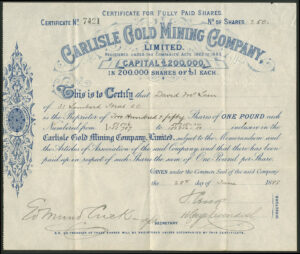 CERTIFICATE FOR FULLY PAID SHARES
CERTIFICATE No. 7421 No OF SHARES 250.
CARLISLE GOLD MINING COMPANY,
LIMITED.
REGISTERED UNDER THE COMPANIES ACTS
CAPITAL £200,000
IN 200,000 SHARES OF £1 EACH.
This is to Certify that David
of 31 Lombard
is the Proprietor of Two Hundred & fifty Shares of ONE POUND each
Numbered from to inclusive in the
Carlisle Gold Mining Company, Limited, subject to the Memorandum and
the Articles of Association of the said Company, and that there has been
paid up in respect of such Shares the sum of One Pound per Share.
GIVEN under the Common Seal of the said Company
the 28th day of June
Edmund
SECRETARY
DIRECTORS
N.B. NO TRANSFER OF THESE SHARES WILL BE REGISTERED UNLESS ACCOMPANIED BY THIS CERTIFICATE.